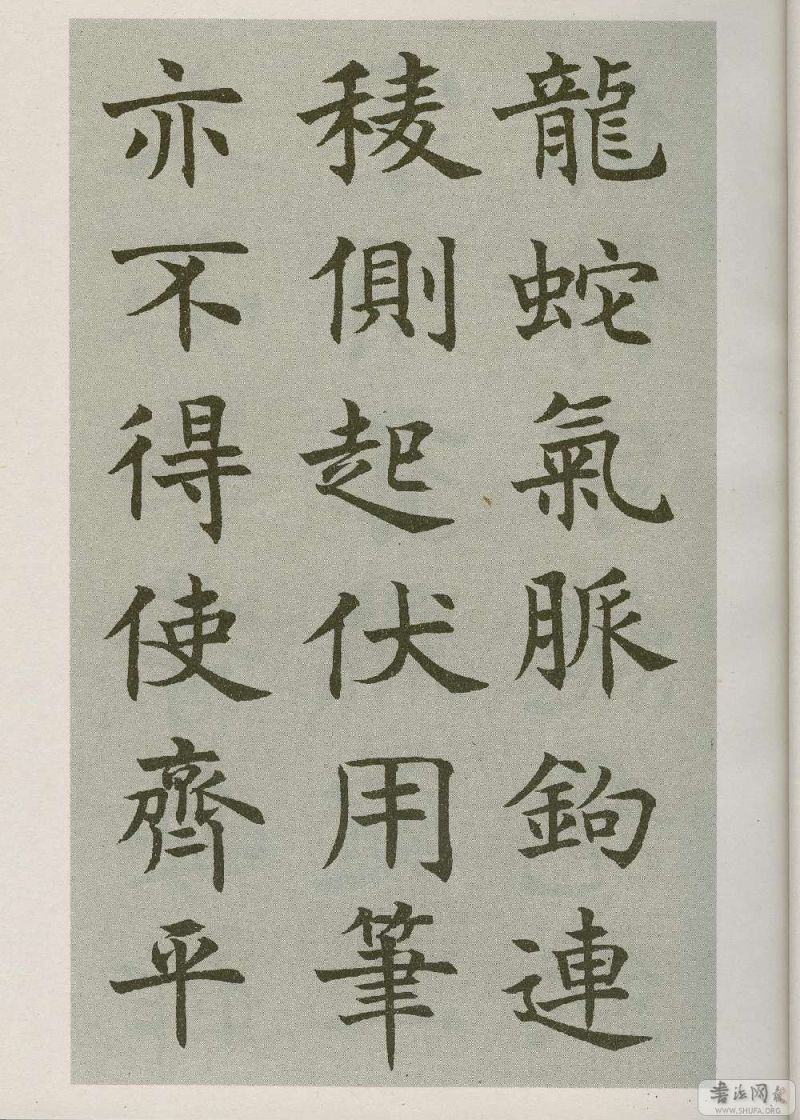 龍蛇氣脈鉤連
稜側起伏用筆
亦不得使齊平
書法网
WWW.SHUFA.ORG